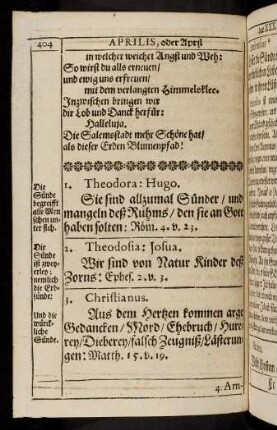 404 APRILIS, oder April
in welcher weicher Angst und Weh:
So wirst du alls erneuen/
und ewig uns erfreuen/
mit dem verlangten Himmelsklee.
Inzwischen bringen wir
dir Lob und Danck herfür:
Halleluja.
Die Salemsstadt mehr Schöne hat/
als dieser Erden Blumenpfad!
Die Sünde begreifft alle Menschen unter sich.
1. Theodora: Hugo.
Sie sind allzumal Sünder / und
mangeln deß Rühms / den sie an Gott
haben solten: Röm. 4. v. 23.
Die Sünde ist zweyerley: nemlich die Erbsünde:
2. Theodosia: Josua.
Wir sind von Natur Kinder deß
Zorns: Ephes. 2. v. 3.
Und die würckliche Sünde.
3. Christianus.
Aus dem Hertzen kommen arge
Gedancken / Mord / Ehebruch / Hure-
rey / Dieberey / falsch Zeugniß / Lästerun-
gen: Matth. 15. v. 19.
4. Am-